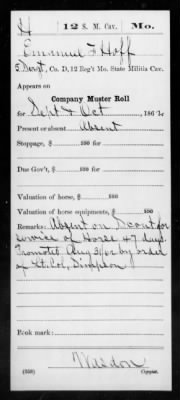 H 12 S. M. Cav. Mo.
Emanuel F Hoff
5 Sergt, Co. D, 12 Reg't Mo. State Militia Cav.
Appears on
Company Muster Roll
for Sept & Oct, 1862.
Present or absent Absent
Stoppage, $ 100 for
Due Gov't, $ 100 for
Valuation of horse, $ 100
Valuation of horse equipments, $ 100
Remarks: Absent on Scout for
service of Horse 47 days
Promoted Aug 3/62 by order
of Lt. Col, Simpson
Book mark:
Weldon
(359) Copyist.